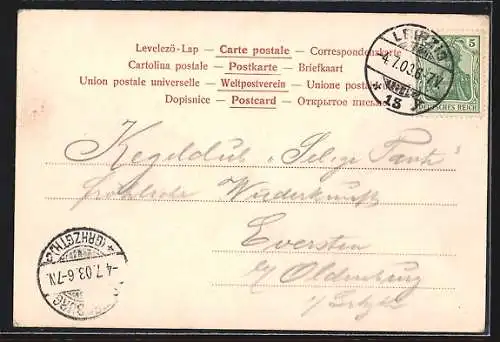 Levelezö-Lap — Carte postale — Correspondenzkarte
Cartolina postale — Postkarte — Briefkaart
Union postale universelle — Weltpostverein — Unione postale
Dopisnice — Postcard — Открытое письмо
LEIPZIG
4.7.03. 6-7N.
* 13
5
DEUTSCHES REICH
Kegelclub „Selige Tante"
fröhliche Wiederkunft
Eversten
b/ Oldenburg
(GRHZGTH.)
-4.7.03. 6-7N.